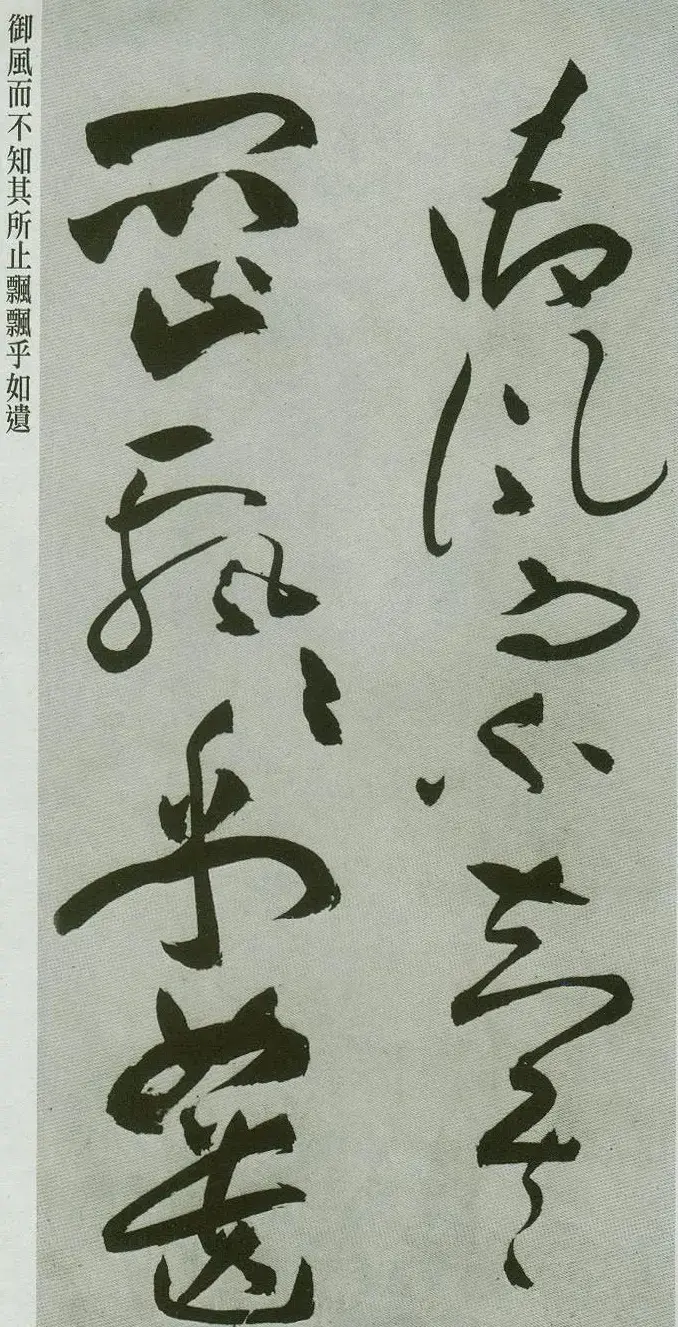 御風而不知其
所止飄〻乎如遺
御風而不知其所止飄飄乎如遺